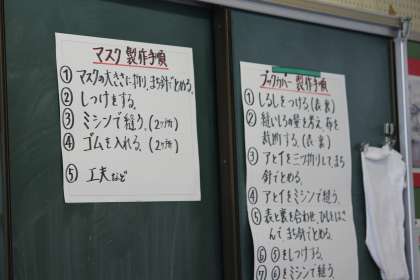 マスク製作手順
① マスクの大きさに折り、まち針でとめる。
② しつけをする。
③ ミシンで縫う。(2ヶ所)
④ ゴムを入れる。(2ヶ所)
⑤ 工夫など
ブックカバー 製作手順
① しるしをつける(表、裏)
② 縫いしろの量を考え、布を
裁断する。(表、裏)
③ アとイを三つ折りして、まち
針でとめる。
④ アとイをミシンで縫う。
⑤ 表と裏を合わせ、ひもをはさ
んで、まち針でとめる。
⑥ ⑤をしつけする。
⑦ ⑥をミシンで縫う。